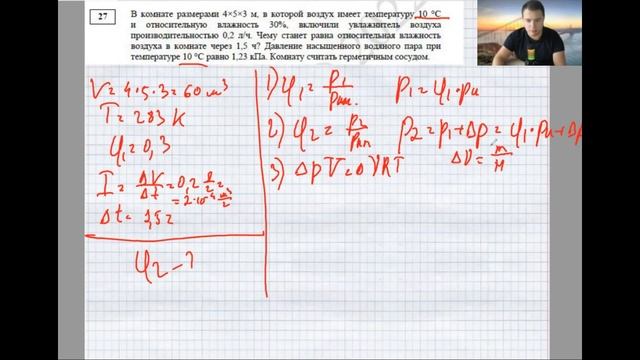 27
В комнате размерами 4×5×3 м, в которой воздух имеет температуру 10 °C
и относительную влажность 30%, включили увлажнитель воздуха
производительностью 0,2 л/ч. Чему станет равна относительная влажность
воздуха в комнате через 1,5 ч? Давление насыщенного водяного пара при
температуре 10 °C равно 1,23 кПа. Комнату считать герметичным сосудом.
V = 4·5·3 = 60 м³
T = 283 K
φ₁ = 0,3
I = ΔV/Δt = 0,2 л/г =
= 2·10⁻⁴ м³/г
Δt = 1,5 г
φ₂ - ?
1) φ₁ = p₁/pнп. p₁ = φ₁·pн
2) φ₂ = p₂/pнп p₂ = p₁ + Δp = φ₁·pн + Δp
3) Δp V = Δν R T Δν = m/M